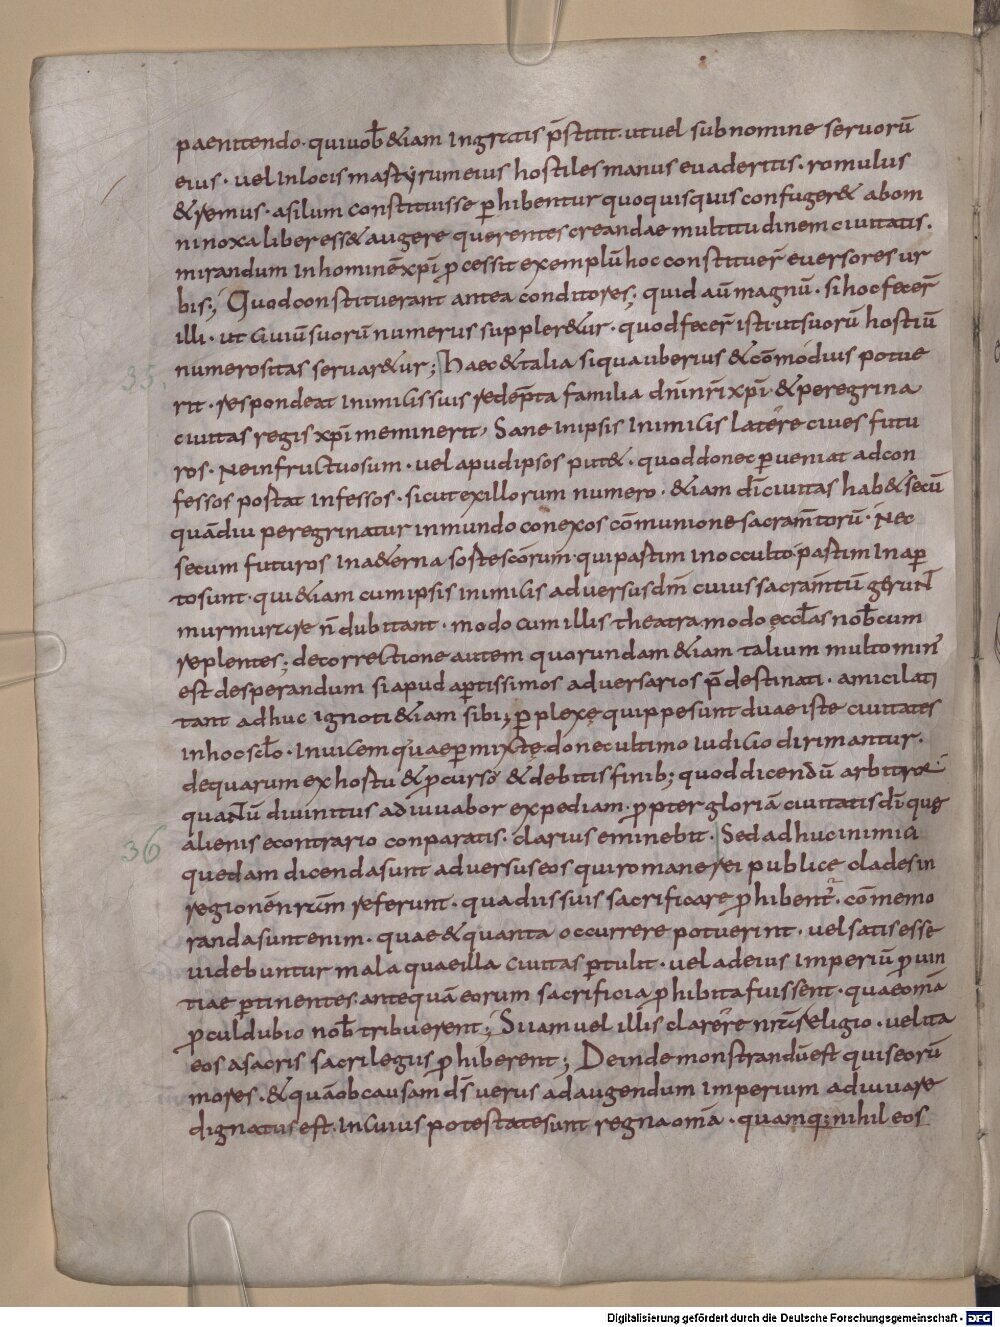 paenitendo· quiuob̅ &iam ingratis p̅stitit· ut uel sub nomine seruorū
eius· uel in locis martyrum eius hostiles manus euaderitis· romulus
& remus· asilum constituisse ꝑhibentur quo quisquis confuger& abom
ni noxa liber ess& augere querentes creandae multitudinem ciuitatis·
mirandum in hominē xp̅i ꝓcessit exemplū hoc constituer̅ euersores ur
bis; Quod constituerant antea conditores; quid au̅ magnū· si hoc fecer̅
illi· ut ciuiū suorū numerus suppler&ur· quod fecer̅ isti ut suorū hostiū
35. numerositas seruar&ur; Haec & talia siqua uberius & cōmodius potue
rit· respondeat inimicis suis redēpta familia dn̅i nr̅i xp̅i· & peregrina
ciuitas regis xp̅i meminerit, Sane in ipsis inimicis latere ciues futu
ros· Ne infructuosum· uel apud ipsos put&· quod donec ꝑueniat ad con
fessos postat infessos· sicut ex illorum numero· &iam dī ciuitas hab& secū
quādiu peregrinatur in mundo conexos cōmunione sacram̅torū· Nec
secum futuros in a&erna sorte sc̅orum· qui partim in occulto partim in aꝑ
to sunt· qui &iam cum ipsis inimicis aduersus dm̅ cuius sacram̅tū gerunt
murmurare n̅ dubitant· modo cum illis theatra modo ęccl̅as nob̅cum
replentes; de correctione autem quorundam &iam talium multo min᾽
est desperandum si apud aꝑtissimos aduersarios p̅destinati· amici lati
tant adhuc ignoti &iam sibi; ꝑplexę quippe sunt duae iste ciuitates
in hoc sc̅lo· Inuicem quae ꝑmixtę donec ultimo iudicio dirimantur·
de quarum exhortu & ꝓcurso & debitis finib; quod dicendū arbitror
quantū diuinitus adiuuabor expediam· ꝓpter gloriā ciuitatis dī quę
36 alienis econtrario conparatis· clarius eminebit· Sed adhuc inimici
quedam dicenda sunt aduersus eos qui romane rei publicę clades in
regionē nr̅am referunt· qua diis suis sacrificare ꝓhibentr̅· cōmemo
randa sunt enim· quae & quanta occurrere potuerint· uel satis esse
uidebuntur mala quae illa ciuitas ꝑtulit· uel ad eius imperiū ꝓuin
tiae ꝑtinentes antequā eorum sacrificia ꝓhibita fuissent· quae omā
ꝓculdubio nob̅ tribuerent; Si iam uel illis clareret nr̅a religio· uel ita
eos a sacris sacrilegiis ꝓhiberent; Deinde monstrandū est qui seorū
mores· & quā ob causam ds̅ uerus ad augendum imperium adiuuare
dignatus est· In cuius potestate sunt regna omā· quamq; nihil eos
Digitalisierung gefördert durch die Deutsche Forschungsgemeinschaft - DFG